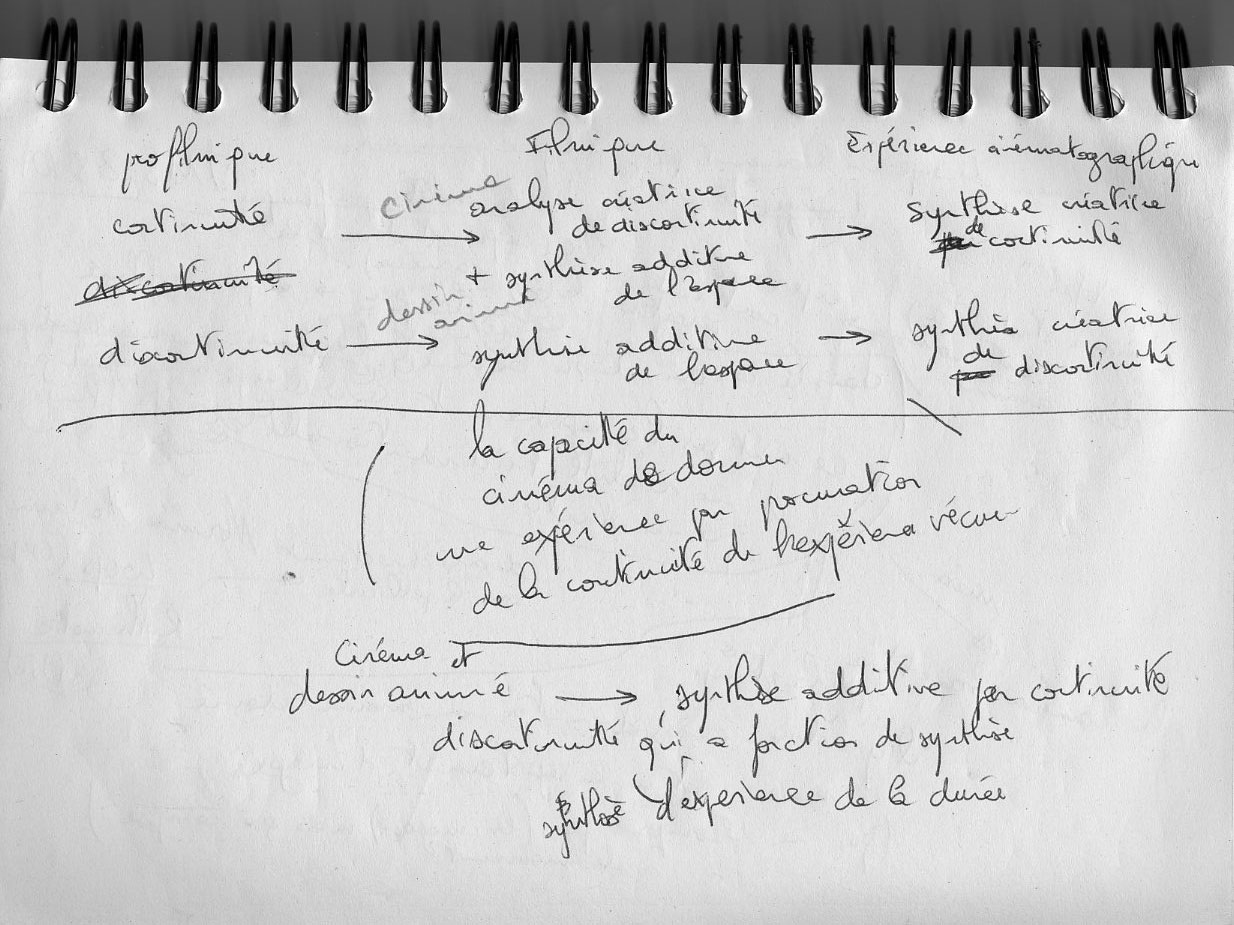 profilmique Filmique Expérience cinématographique
continuité cinéma analyse créatrice de discontinuité synthèse créatrice de continuité
discontinuité + synthèse additive de l'espace
discontinuité dessin animé synthèse additive de l'espace synthès créatrice de discontinuité
la capacité du
cinéma de donner
une expérience par procuration
de la continuité de l'expérience vécue
Cinéma et
dessin animé synthèse additive par continuité
discontinuité qui a fonction de synthèse
synthèse d'expérience de la durée